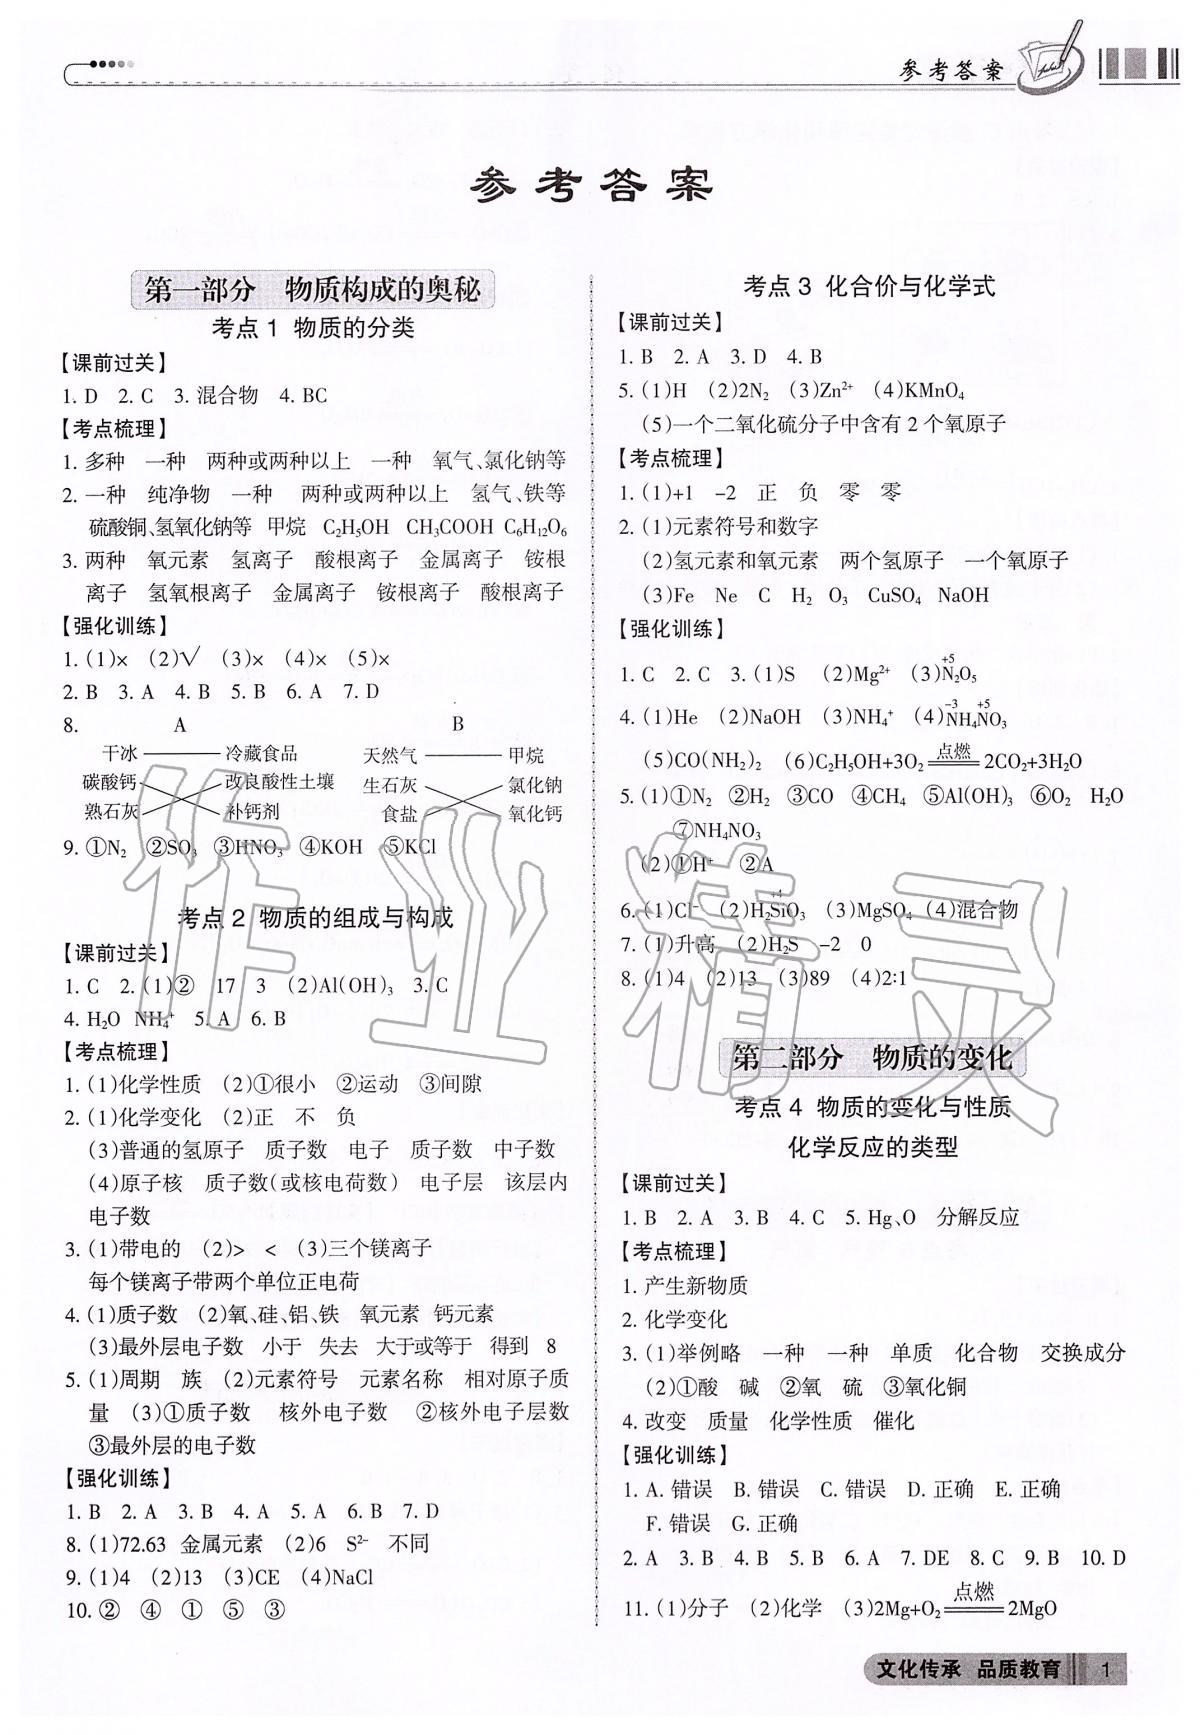 参考答案
参考答案
第一部分 物质构成的奥秘
考点 1 物质的分类
【课前过关】
1. D 2. C 3. 混合物 4. BC
【考点梳理】
1. 多种 一种 两种或两种以上 一种 氧气、氯化钠等
2. 一种 纯净物 一种 两种或两种以上 氢气、铁等
硫酸铜、氢氧化钠等 甲烷 C₂H₅OH CH₃COOH C₆H₁₂O₆
3. 两种 氧元素 氢离子 酸根离子 金属离子 铵根
离子 氢氧根离子 金属离子 铵根离子 酸根离子
【强化训练】
1. (1)× (2)√ (3)× (4)× (5)×
2. B 3. A 4. B 5. B 6. A 7. D
8. A B
干冰 冷藏食品 天然气 甲烷
碳酸钙 改良酸性土壤 生石灰 氯化钠
熟石灰 补钙剂 食盐 氧化钙
9. ①N₂ ②SO₃ ③HNO₃ ④KOH ⑤KCl
考点 2 物质的组成与构成
【课前过关】
1. C 2. (1)② 17 3 (2)Al(OH)₃ 3. C
4. H₂O NH₄⁺ 5. A 6. B
【考点梳理】
1. (1)化学性质 (2)①很小 ②运动 ③间隙
2. (1)化学变化 (2)正 不 负
(3)普通的氢原子 质子数 电子 质子数 中子数
(4)原子核 质子数(或核电荷数) 电子层 该层内
电子数
3. (1)带电的 (2)> < (3)三个镁离子
每个镁离子带两个单位正电荷
4. (1)质子数 (2)氧、硅、铝、铁 氧元素 钙元素
(3)最外层电子数 小于 失去 大于或等于 得到 8
5. (1)周期 族 (2)元素符号 元素名称 相对原子质
量 (3)①质子数 核外电子数 ②核外电子层数
③最外层的电子数
【强化训练】
1. B 2. A 3. B 4. A 5. A 6. B 7. D
8. (1)72.63 金属元素 (2)6 S²⁻ 不同
9. (1)4 (2)13 (3)CE (4)NaCl
10. ② ④ ① ⑤ ③
考点 3 化合价与化学式
【课前过关】
1. B 2. A 3. D 4. B
5. (1)H (2)2N₂ (3)Zn²⁺ (4)KMnO₄
(5)一个二氧化硫分子中含有 2 个氧原子
【考点梳理】
1. (1)+1 -2 正 负 零 零
2. (1)元素符号和数字
(2)氢元素和氧元素 两个氢原子 一个氧原子
(3)Fe Ne C H₂ O₃ CuSO₄ NaOH
【强化训练】
+5
1. C 2. C 3. (1)S (2)Mg²⁺ (3)N₂O₅
-3 +5
4. (1)He (2)NaOH (3)NH₄⁺ (4)NH₄NO₃
点燃
(5)CO(NH₂)₂ (6)C₂H₅OH+3O₂═══2CO₂+3H₂O
5. (1)①N₂ ②H₂ ③CO ④CH₄ ⑤Al(OH)₃ ⑥O₂ H₂O
⑦NH₄NO₃
(2)①H⁺ ②A
+4
6. (1)Cl⁻ (2)H₂SiO₃ (3)MgSO₄ (4)混合物
7. (1)升高 (2)H₂S -2 0
8. (1)4 (2)13 (3)89 (4)2:1
第二部分 物质的变化
考点 4 物质的变化与性质
化学反应的类型
【课前过关】
1. B 2. A 3. B 4. C 5. Hg、O 分解反应
【考点梳理】
1. 产生新物质
2. 化学变化
3. (1)举例略 一种 一种 单质 化合物 交换成分
(2)①酸 碱 ②氧 硫 ③氧化铜
4. 改变 质量 化学性质 催化
【强化训练】
1. A. 错误 B. 错误 C. 错误 D. 正确 E. 正确
F. 错误 G. 正确
2. A 3. B 4. B 5. B 6. A 7. DE 8. C 9. B 10. D
点燃
11. (1)分子 (2)化学 (3)2Mg+O₂═══2MgO
文化传承 品质教育 1
作业精灵